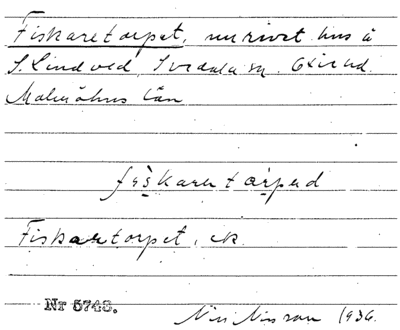 Fiskaretorpet, nu rivet hus å
S. Lindved, Svedala sn, Oxie hd.
Malmöhus län
fiskaretårped
Fisk torpet, ek
Nr 5748.
Nils Nilsson 1936.